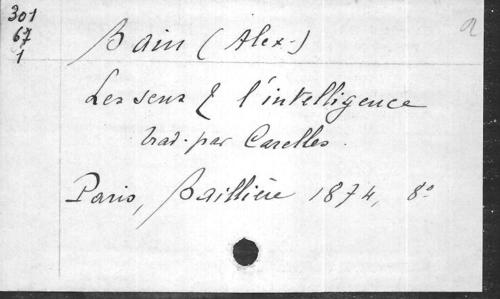 301
67
1
a
Bain (Alex.)
Les sens & l'intelligence
trad. par Cazelles.
Paris, Baillière 1874, 8°